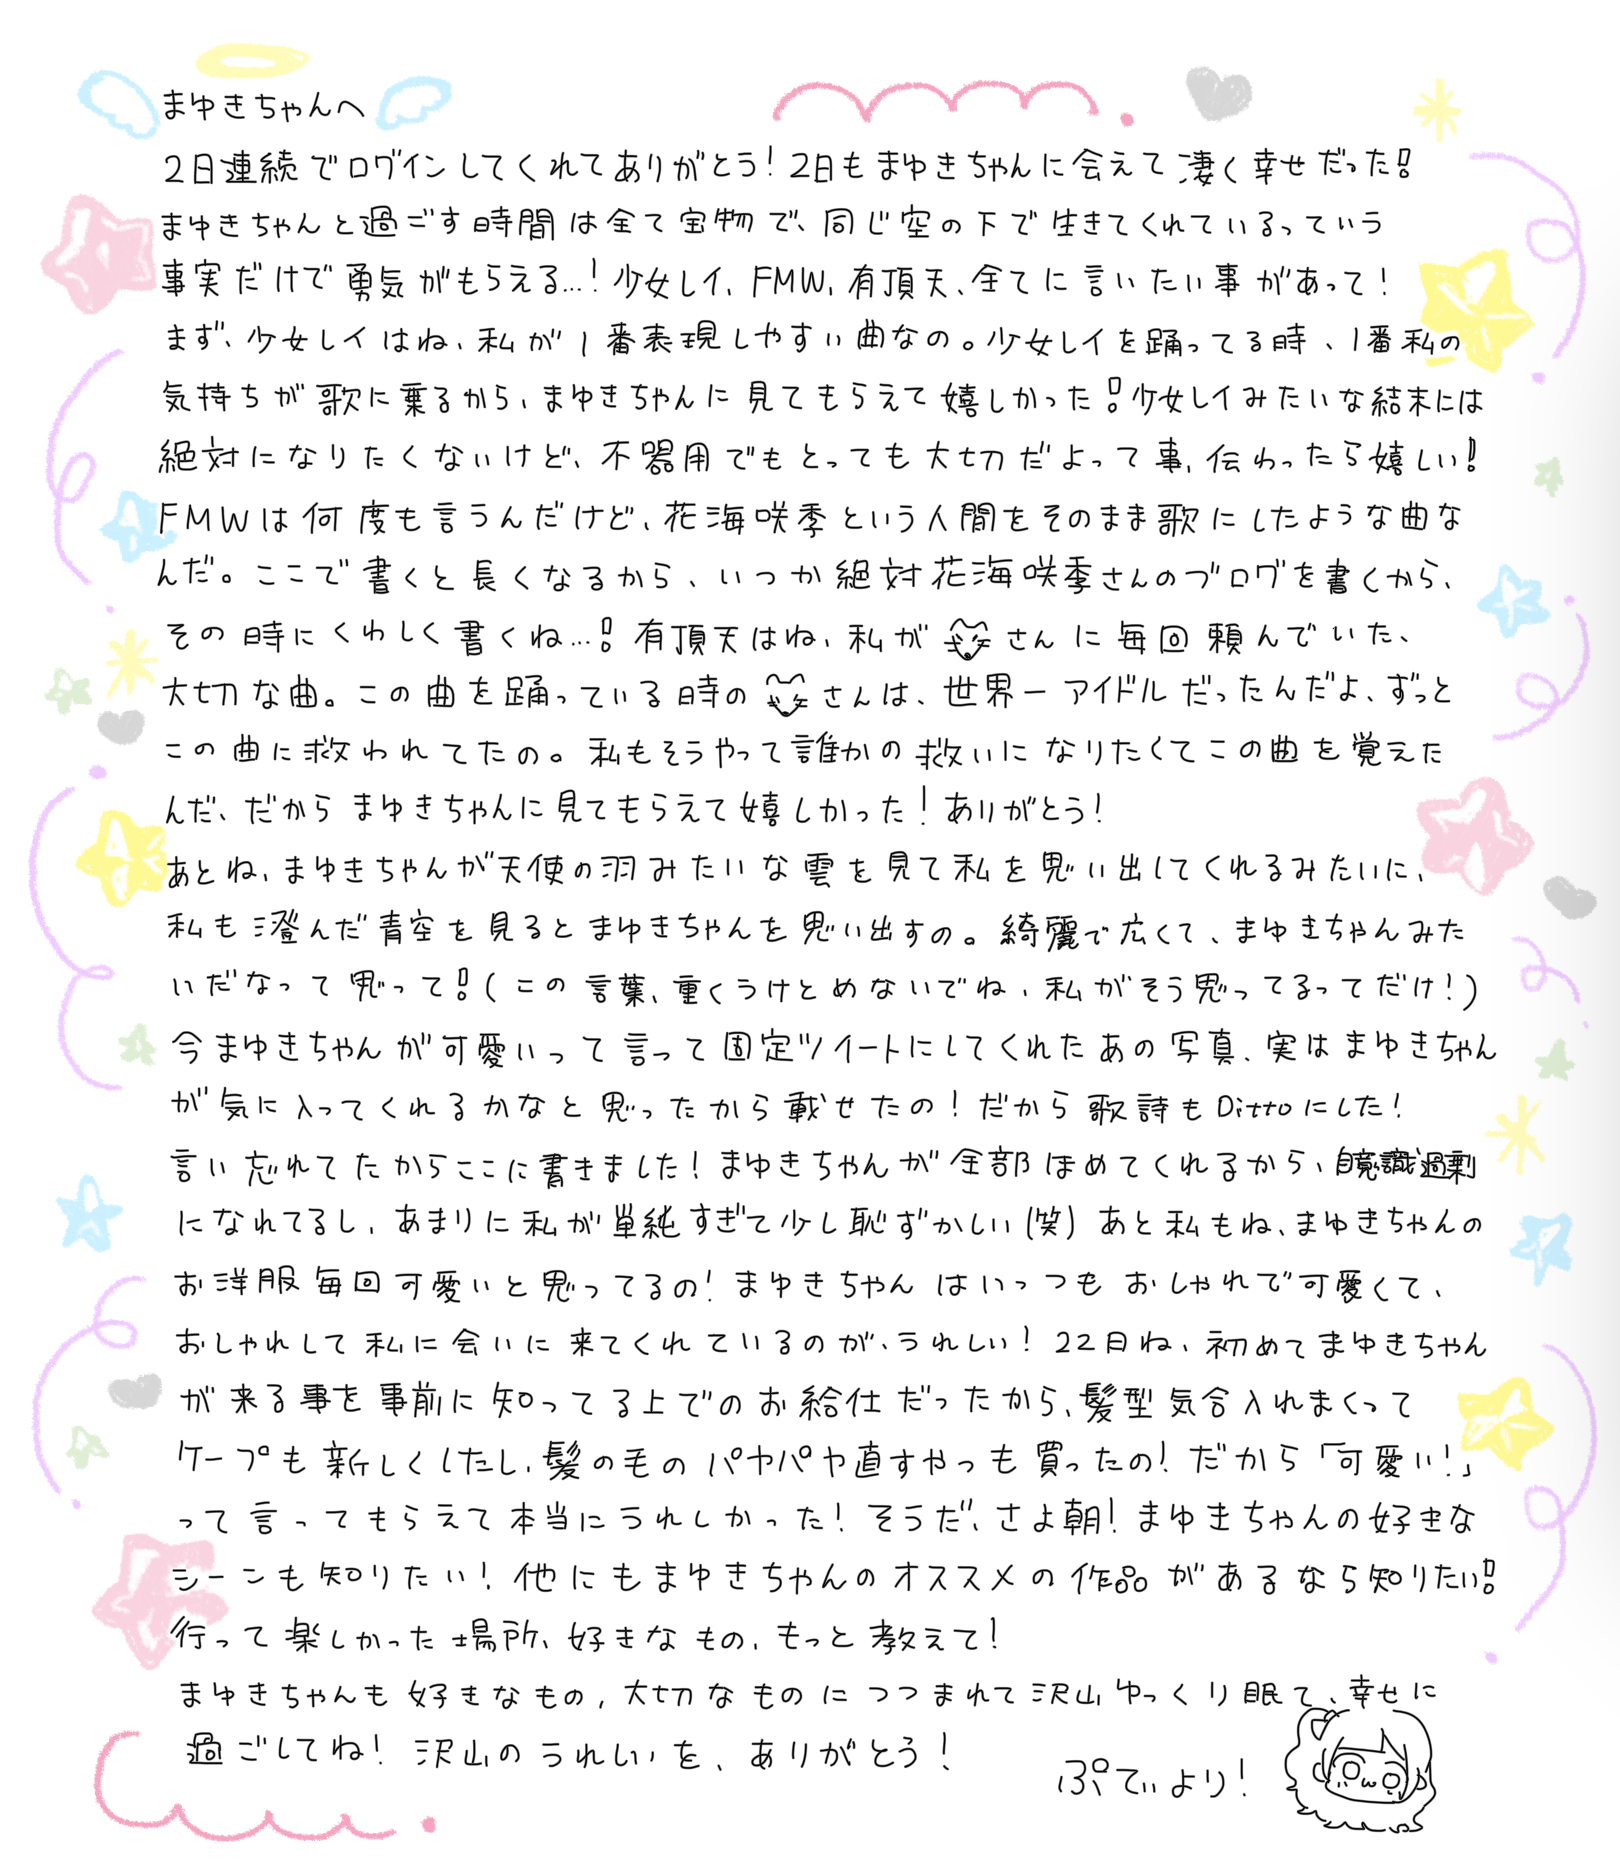 まゆきちゃんへ
2日連続でログインしてくれてありがとう!2日もまゆきちゃんに会えて凄く幸せだった!
まゆきちゃんと過ごす時間は全て宝物で、同じ空の下で生きてくれているっていう
事実だけで勇気がもらえる…!少女レイ、FMW、有頂天、全てに言いたい事があって!
まず、少女レイはね、私が1番表現しやすい曲なの。少女レイを踊ってる時、1番私の
気持ちが歌に乗るから、まゆきちゃんに見てもらえて嬉しかった!少女レイみたいな結末には
絶対になりたくないけど、不器用でもとっても大切だよって事、伝わったら嬉しい!
FMWは何度も言うんだけど、花海咲季という人間をそのまま歌にしたような曲な
んだ。ここで書くと長くなるから、いつか絶対花海咲季さんのブログを書くから、
その時にくわしく書くね…!有頂天はね、私がさんに毎回頼んでいた、
大切な曲。この曲を踊っている時のさんは、世界一アイドルだったんだよ、ずっと
この曲に救われてたの。私もそうやって誰かの救いになりたくてこの曲を覚えた
んだ、だからまゆきちゃんに見てもらえて嬉しかった!ありがとう!
あとね、まゆきちゃんが天使の羽みたいな雲を見て私を思い出してくれるみたいに、
私も澄んだ青空を見るとまゆきちゃんを思い出すの。綺麗で広くて、まゆきちゃんみた
いだなって思って!(この言葉、重くうけとめないでね、私がそう思ってるってだけ!)
今まゆきちゃんが可愛いって言って固定ツイートにしてくれたあの写真、実はまゆきちゃん
が気に入ってくれるかなと思ったから載せたの!だから歌詩もDittoにした!
言い忘れてたからここに書きました!まゆきちゃんが全部ほめてくれるから、自意識過剰
になれてるし、あまりに私が単純すぎて少し恥ずかしい(笑)あと私もね、まゆきちゃんの
お洋服毎回可愛いと思ってるの!まゆきちゃんはいっつもおしゃれで可愛くて、
おしゃれして私に会いに来てくれているのが、うれしい!22日ね、初めてまゆきちゃん
が来る事を事前に知ってる上でのお給仕だったから、髪型気合入れまくって
ケープも新しくしたし、髪の毛のパヤパヤ直すやつも買ったの!だから「可愛い!」
って言ってもらえて本当にうれしかった!そうだ、さよ朝!まゆきちゃんの好きな
シーンも知りたい!他にもまゆきちゃんのオススメの作品があるなら知りたい!
行って楽しかった場所、好きなもの、もっと教えて!
まゆきちゃんも好きなもの、大切なものにつつまれて沢山ゆっくり眠て、幸せに
過ごしてね!沢山のうれしいを、ありがとう!
ぷてぃより!